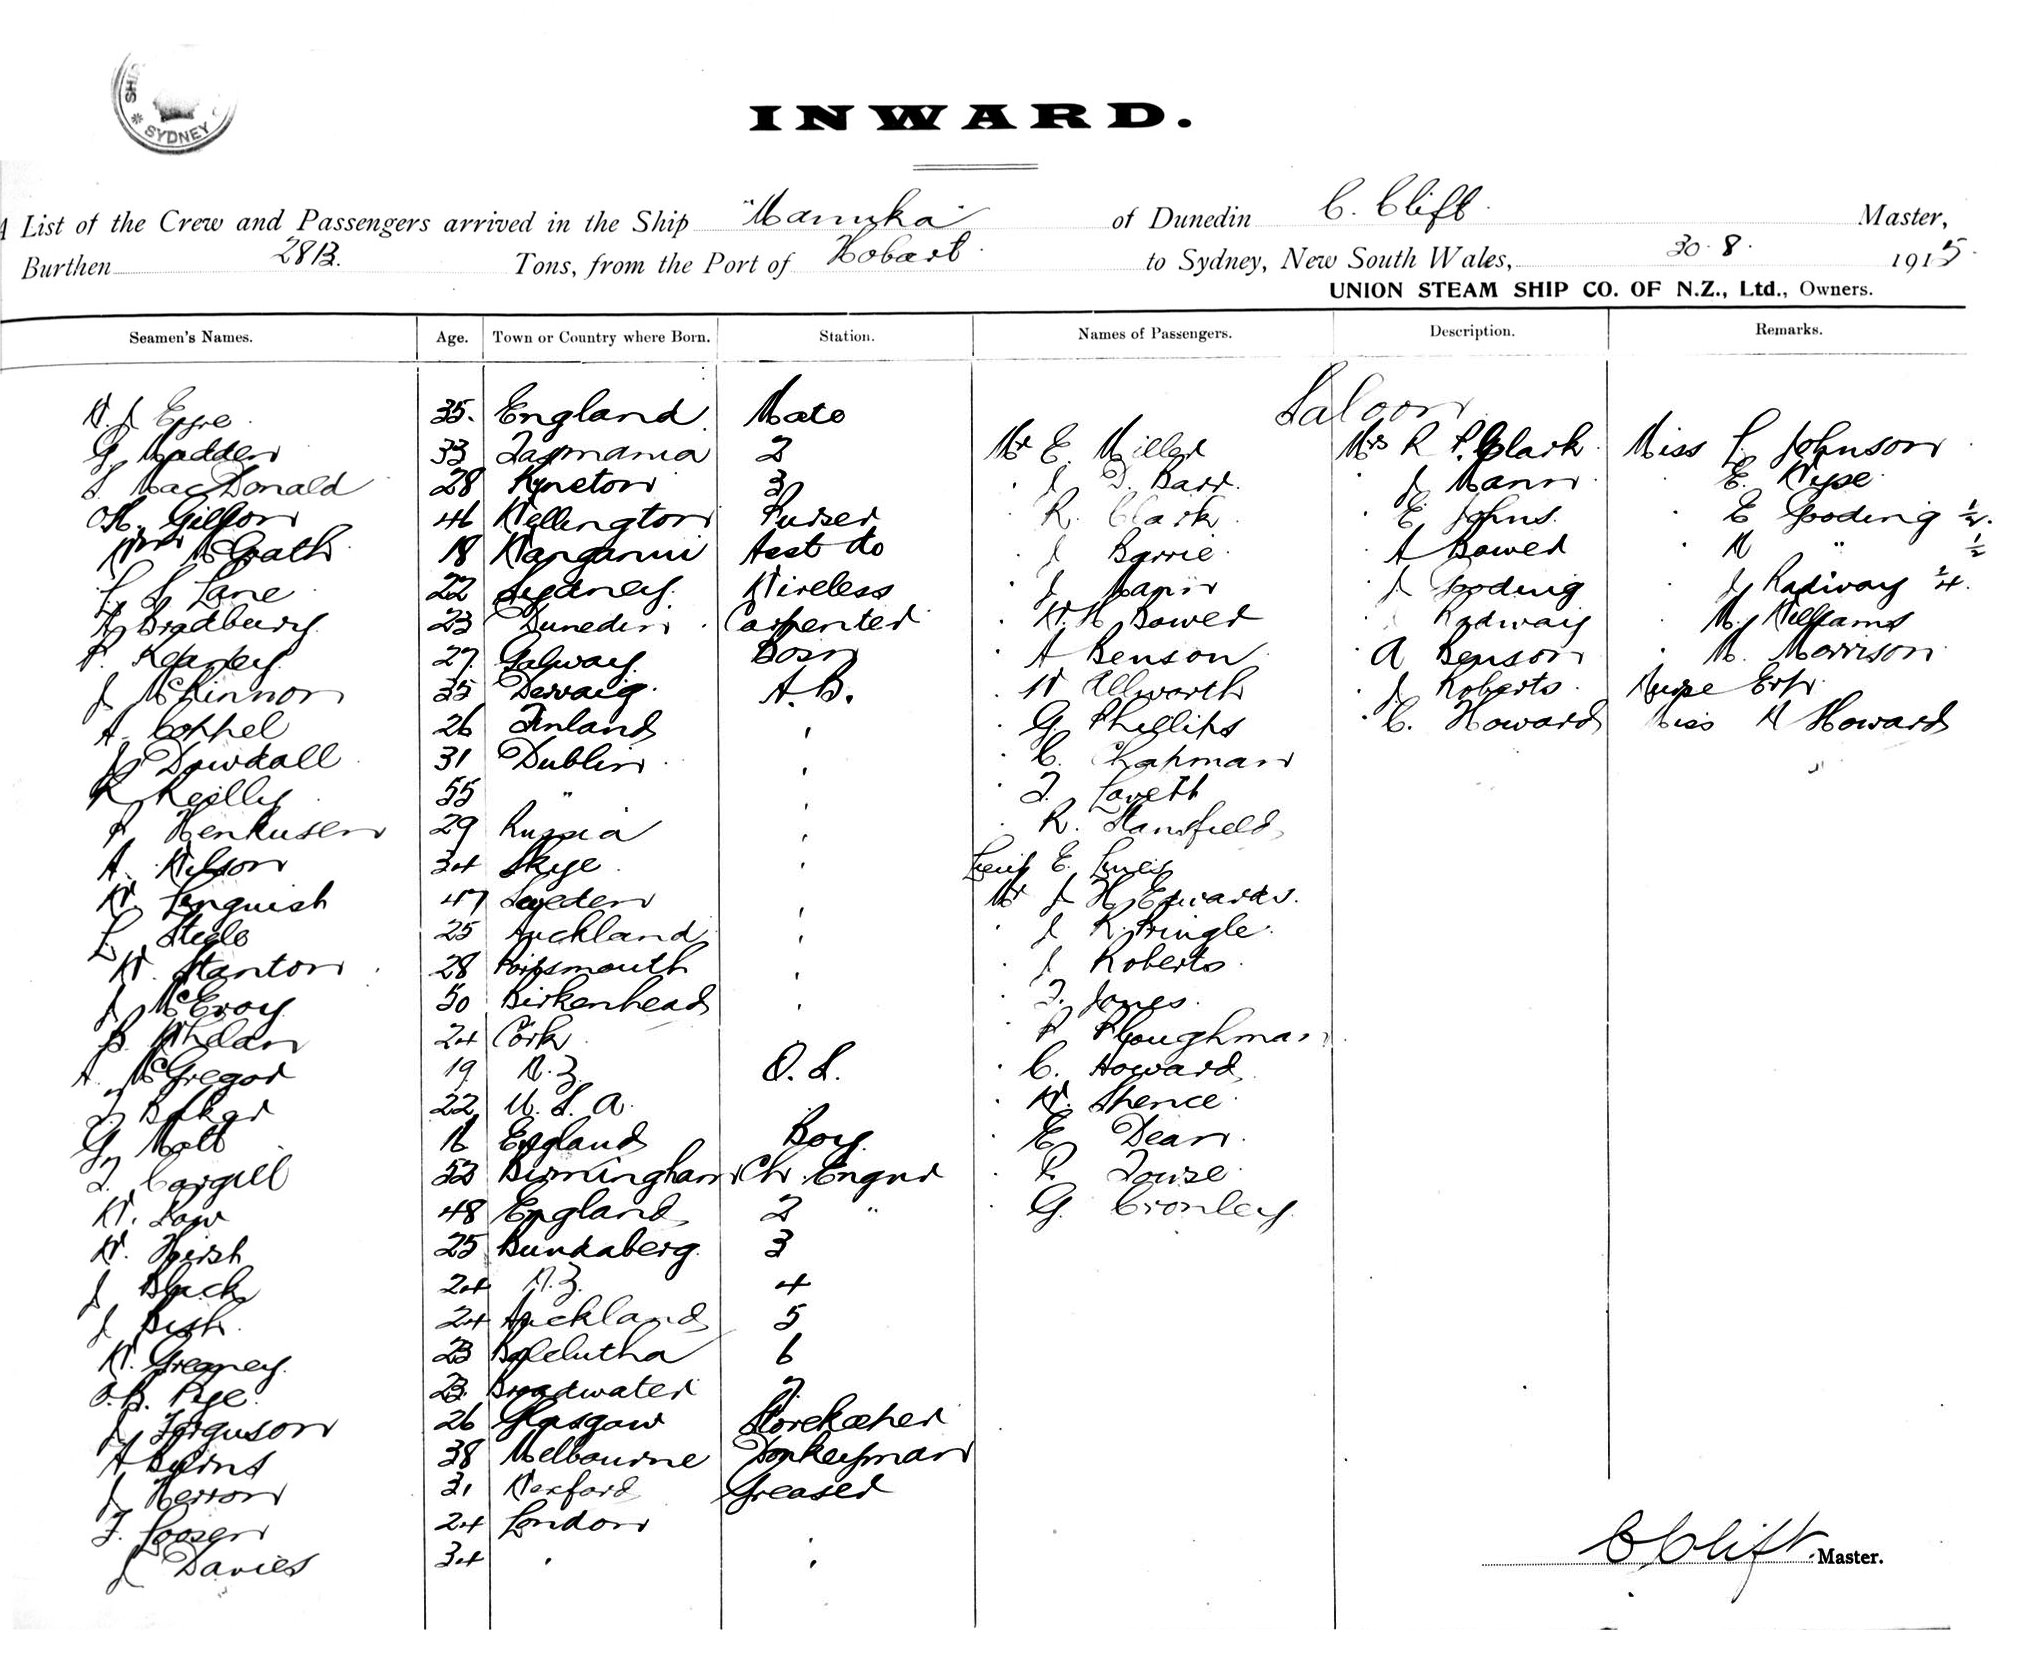 SYDNEY
INWARD.
A List of the Crew and Passengers arrived in the Ship "Manuka" of Dunedin C. Clift. Master,
Burthen 2813. Tons, from the Port of Hobart to Sydney, New South Wales, 30.8. 1915.
UNION STEAM SHIP CO. OF N.Z., Ltd., Owners.
Seamen's Names. Age. Town or Country where Born. Station. Names of Passengers. Description. Remarks.
Saloon
W. J Eyre 35. England Mate
G Madden 33 Tasmania 2 Mr E. Miller Mrs R P. Clark Miss L Johnson
MacDonald 28 Kyneton 3 J D. Barr. J Mann E. Wyse
Gibson 46 Wellington Purser R. Clark E Johns. E Gooding 1/2.
McGrath 18 Wanganui Asst do J Barrie A Bower N " 1/2
L S Lane 22 Sydney. Wireless J Mann J Gooding J Radway 1/4.
Bradbury 23 Dunedin. Carpenter W. H Bower Radway M. Williams
P. Kearley 27 Galway. Bosn A Benson A Benson M. Morrison
J McKinnon 35 Dervaig. A.B. W Ellworth J Roberts. Nurse
A. Coppel 26 Finland ' G Phillips C. Howard Miss N Howard
J Dowdall 31 Dublin ' C. Chapman
R Reilly 55 " ' T. Lovett
P Henkusen 29 Russia ' R. Stansfield
A. Wilson 34 Skye ' E.
W. Linguish 47 Sweden ' Mr J H. Edwards.
L Steele 25 Auckland ' J K. Pringle.
W. Stanton 28 Portsmouth ' J Roberts.
J McEvoy 50 Birkenhead ' T. Jones.
B. Whelan 24 Cork P Ploughman
A. McGregor 19 N.Z. O.S. C. Howard
T. Baker 22 U.S.A. W. Spence
G Mott 16 England Boy E Dean.
T. Cargill 53 Birmingham Ch. Engnr P. Towse
W. Law 48 England 2 " G. Cronley.
W. Hirsh 25 Bundaberg. 3
J Black 24 N.Z. 4
J Bish. 24 Auckland 5
W. Gregney. 23 Balclutha 6
O.B. Pye. 23. Broadwater 7.
J Ferguson 26 Glasgow Storekeeper
A Burns 38 Melbourne Donkeyman
J Herron 31 Wexford Greaser
F. Looser 24 London '
J Davies 34 ' '
C Clift. Master.